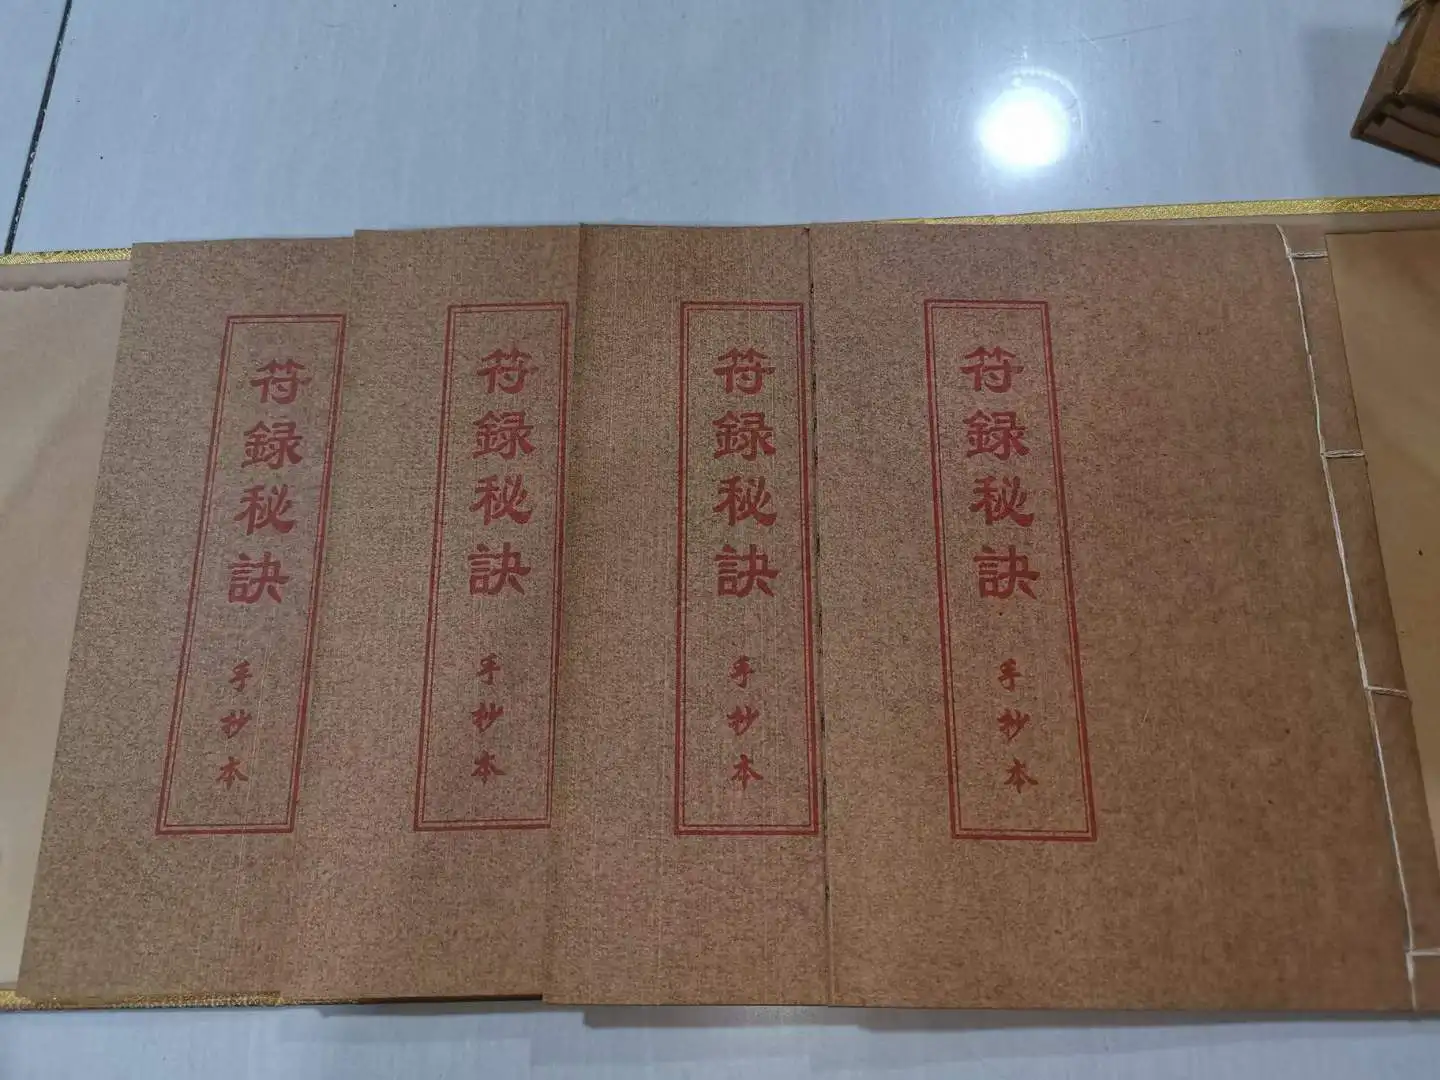 符録秘訣
手抄本
符録秘訣
手抄本
符録秘訣
手抄本
符録秘訣
手抄本